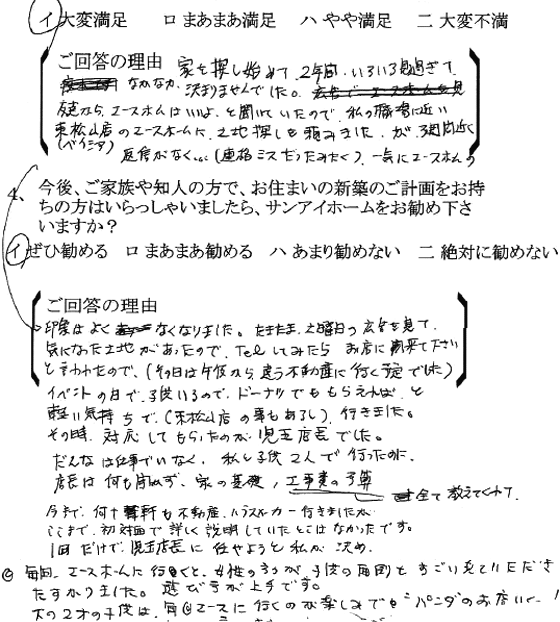 イ 大変満足 ロ まあまあ満足 ハ やや満足 二 大変不満
ご回答の理由 家を探し始めて、2年間、いろいろ見過ぎて
なかなか決まりませんでした。
エースホームはいいよ、と聞いていたので、私の職場に近い
東松山店のエースホームに、土地探しを頼みました。が、3週間近く
(ベイシア) 返信がなく... (連絡ミスだったみたく)、一気にエースホームの
4、今後、ご家族や知人の方で、お住まいの新築のご計画をお持
ちの方はいらっしゃいましたら、サンアイホームをお勧め下さ
いますか?
イ ぜひ勧める ロ まあまあ勧める ハ あまり勧めない 二 絶対に勧めない
ご回答の理由
印象はよくなくなりました。たまたま、土曜日の広告を見て、
気になった土地があったので、Telしてみたら お店に来て下さい
と言われたので、(その日は午後から違う不動産に行く予定でした)
イベントの日で、子供いるので、ドーナツでももらえれば、と
軽い気持ちで、(東松山店の事もあるし)、行きました。
その時、対応してもらったのが、児玉店長でした。
だんなは仕事でいなく、私と子供2人で行ったのに、
店長は何も言わず、家の基礎、工事費の予算 全て教えてくれて、
今まで、何十軒も不動産、ハウスメーカー行きましたが
ここまで、初対面で詳しく説明していたとこはなかったです。
1回だけで、児玉店長に任せようと私が決め、
◎ 毎回、エースホームに行くと、女性の方が、子供の面倒をすごい見ていただき
たすかりました。遊び方が上手です。
下の2才の子供は、毎回エースに行くのが楽しみで"パンダのお店いく!